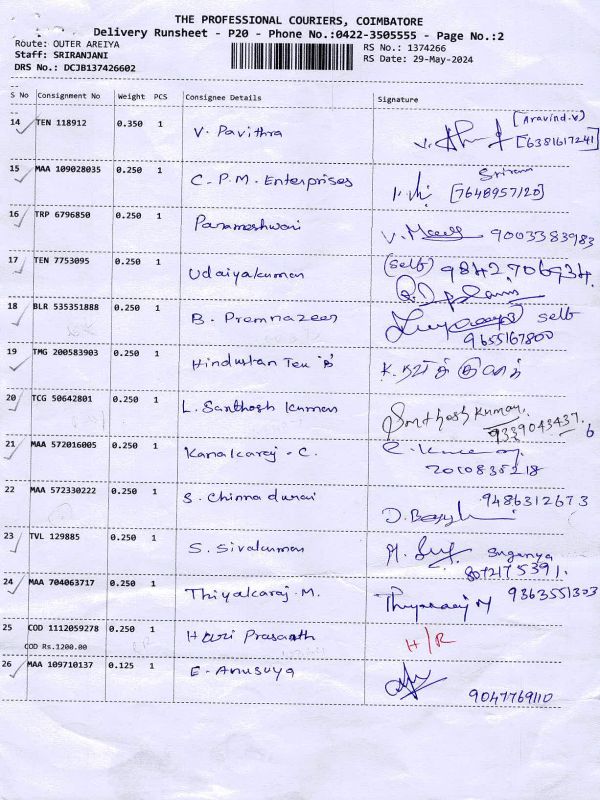 THE PROFESSIONAL COURIERS, COIMBATORE
Delivery Runsheet - P20 - Phone No.:0422-3505555 - Page No.:2
Route: OUTER AREIYA
RS No.: 1374266
Staff: SRIRANJANI
RS Date: 29-May-2024
DRS No.: DCJB137426602
S No Consignment No Weight PCS Consignee Details Signature
14 TEN 118912 0.350 1 V. Pavithra [Aravind.V) [6381617241]
15 MAA 109028035 0.250 1 C.P.M. Enterprises [7648957120]
16 TRP 6796850 0.250 1 Parameshwari 9003383983
17 TEN 7753095 0.250 1 Udaiyakumar (Self) 9842906934.
18 BLR 535351888 0.250 1 B. Premnazeer self
9655167800
19 TMG 200583903 0.250 1 Hindustan Tex 'B'
20 TCG 50642801 0.250 1 L. Santhosh Kumar Santhosh Kumar.
9339043437. 6
21 MAA 572016005 0.250 1 Kanalcaraj - C.
22 MAA 572330222 0.250 1 S. Chinnadurai 9486312673
23 TVL 129885 0.250 1 S. Sivakumar Suganya
8072175391.
24 MAA 704063717 0.250 1 Thiyalcaraj. M. 9363551303
25 COD 1112059278 0.250 1 Hari Prasanth H/R
COD Rs.1200.00
26 MAA 109710137 0.125 1 E. Anusuya
9047769110